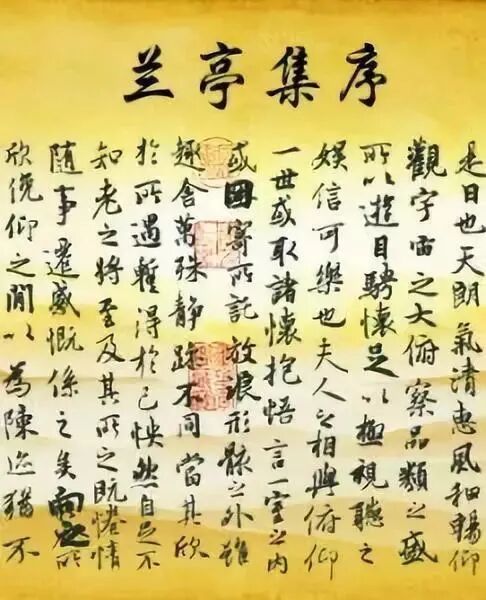 兰亭集序
是日也天朗氣清惠風和暢仰
觀宇宙之大俯察品類之盛
所以遊目騁懷足以極視聽之
娛信可樂也夫人之相與俯仰
一世或取諸懷抱悟言一室之內
或因寄所託放浪形骸之外雖
趣舍萬殊靜躁不同當其欣
於所遇暫得於己怏然自足不
知老之將至及其所之既惓情
隨事遷感慨係之矣向之所
欣俛仰之間以為陳迹猶不